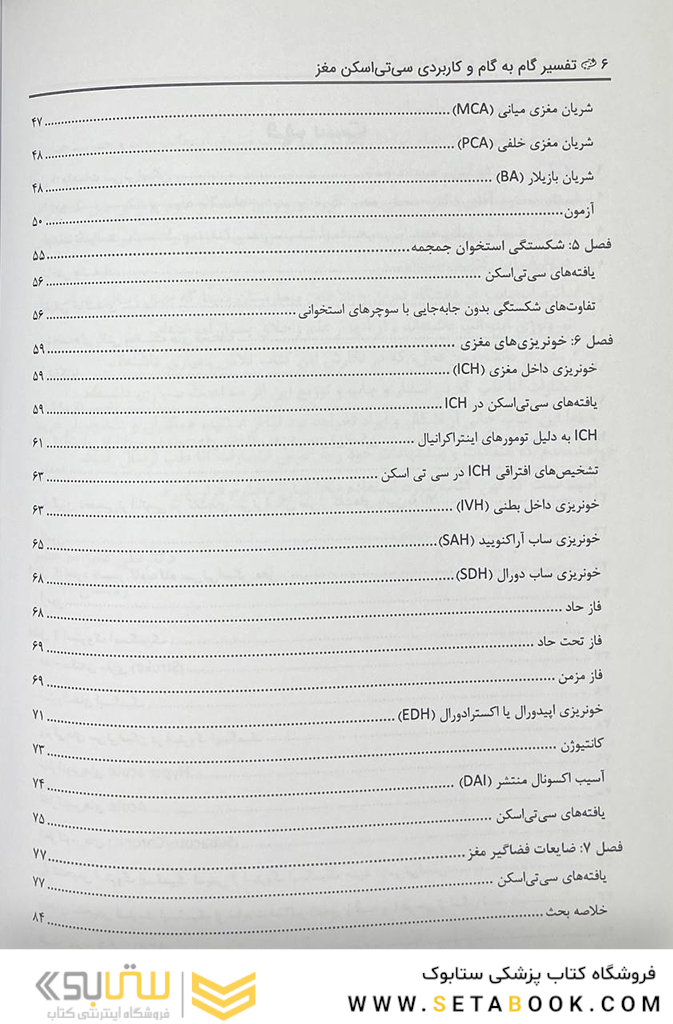 ۶ تفسیر گام به گام و کاربردی سی‌تی‌اسکن مغز
شریان مغزی میانی (MCA) ۴۷
شریان مغزی خلفی (PCA) ۴۸
شریان بازیلار (BA) ۴۸
آزمون ۵۰
فصل ۵: شکستگی استخوان جمجمه ۵۵
یافته‌های سی‌تی‌اسکن ۵۶
تفاوت‌های شکستگی بدون جابه‌جایی با سوچرهای استخوانی ۵۶
فصل ۶: خونریزی‌های مغزی ۵۹
خونریزی داخل مغزی (ICH) ۵۹
یافته‌های سی‌تی‌اسکن در ICH ۵۹
ICH به دلیل تومورهای اینتراکرانیال ۶۱
تشخیص‌های افتراقی ICH در سی تی اسکن ۶۳
خونریزی داخل بطنی (IVH) ۶۳
خونریزی ساب آراکنویید (SAH) ۶۵
خونریزی ساب دورال (SDH) ۶۸
فاز حاد ۶۸
فاز تحت حاد ۶۹
فاز مزمن ۶۹
خونریزی اپیدورال یا اکسترادورال (EDH) ۷۱
کانتیوژن ۷۳
آسیب اکسونال منتشر (DAI) ۷۴
یافته‌های سی‌تی‌اسکن ۷۵
فصل ۷: ضایعات فضاگیر مغز ۷۷
یافته‌های سی‌تی‌اسکن ۷۷
خلاصه بحث ۸۴
فروشگاه کتاب پزشکی ستابوک
WWW.SETABOOK.COM
ستابوک
فروشگاه اینترنتی کتاب